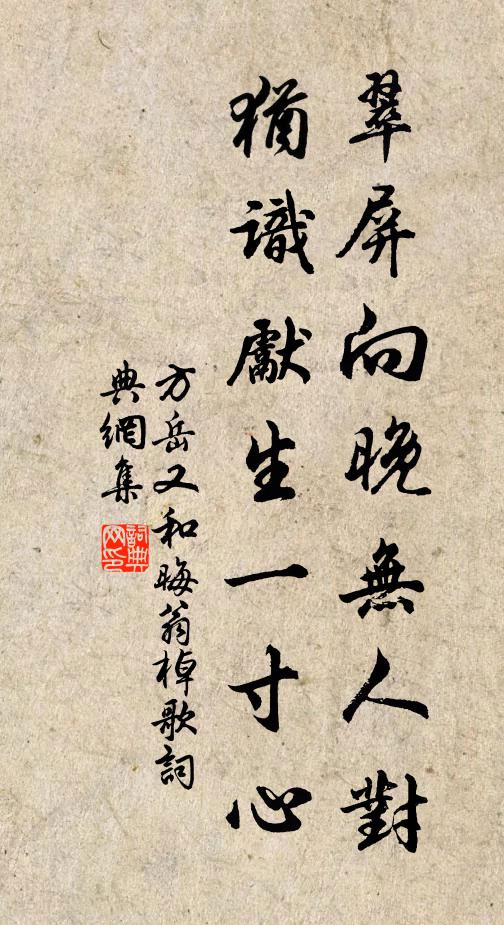 翠屏向晚無人對
猶識獻生一寸心
方岳又和晦翁棹歌詞
典網集
詞典
网印